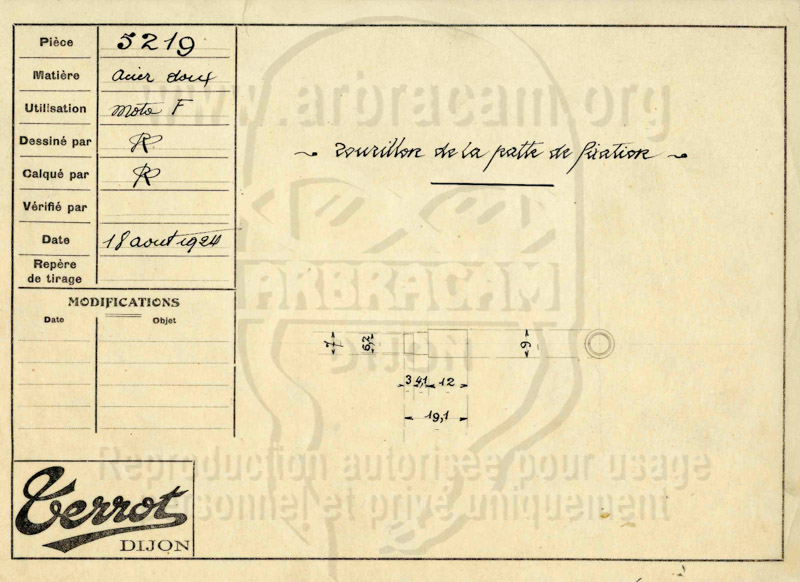 Pièce 5219
Matière Acier doux
Utilisation Moto F
Dessiné par R
Calqué par R
Vérifié par
Date 18 aout 1924
Repère
de tirage
MODIFICATIONS
Date Objet
www.arbracam.org
~ Tourillon de la patte de fixation ~
ARBRACAM
DIJON
7 6,2 9
3 4,1 12
19,1
Reproduction autorisée pour usage
personnel et privé uniquement
Terrot
DIJON